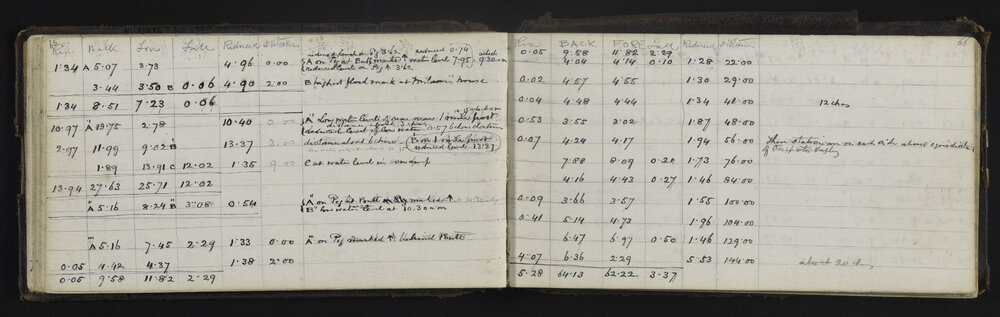 Rise Back Fore Fall Reduced Distance
reduced level on Peg 3.62 reduced 0.74
1.34 A 5.07 3.73 4.96 0.00 A on Peg at Ball marked water level 7.95 9.30 am
reduced levels on Peg 3.62
3.44 3.50 B 0.06 4.90 2.00 B highest flood mark at house
1.34 8.51 7.23 0.06
10.97 A 13.75 2.78 10.40 0.00 A' Low water level of near 1 mile post
distance about
reduced level of low water 0.57 below datum
2.97 11.99 9.02 B 13.37 3.00 distance about before B on 1 mile post
reduced level 13.37
1.89 13.91 C 12.02 1.35 9.00 C at water level in swamp
13.94 27.63 25.71 12.02
A 5.16 8.24 B 3.08 0.54 A on Peg marked at 10.30 am
"B" low water level at 10.30 am
A 5.16 7.45 2.29 1.33 0.00 A" on Peg marked behind
0.05 4.42 4.37 1.38 2.00
0.05 9.58 11.82 2.29
66
Rise BACK FORE Fall Reduced Distance
0.05 9.58 11.82 2.29
4.04 4.14 0.10 1.28 22.00
0.02 4.57 4.55 1.30 29.00
0.04 4.48 4.44 1.34 41.00 12 chs
0.53 3.55 3.02 1.87 48.00
0.07 4.24 4.17 1.94 56.00 These stations are on each side about equidistant
of
7.88 8.09 0.21 1.73 76.00
4.16 4.43 0.27 1.46 84.00
0.09 3.66 3.57 1.55 100.00
0.41 5.14 4.73 1.96 104.00
6.47 6.97 0.50 1.46 129.00
4.07 6.36 2.29 5.53 144.00 about 20 chs
5.28 64.13 62.22 3.37